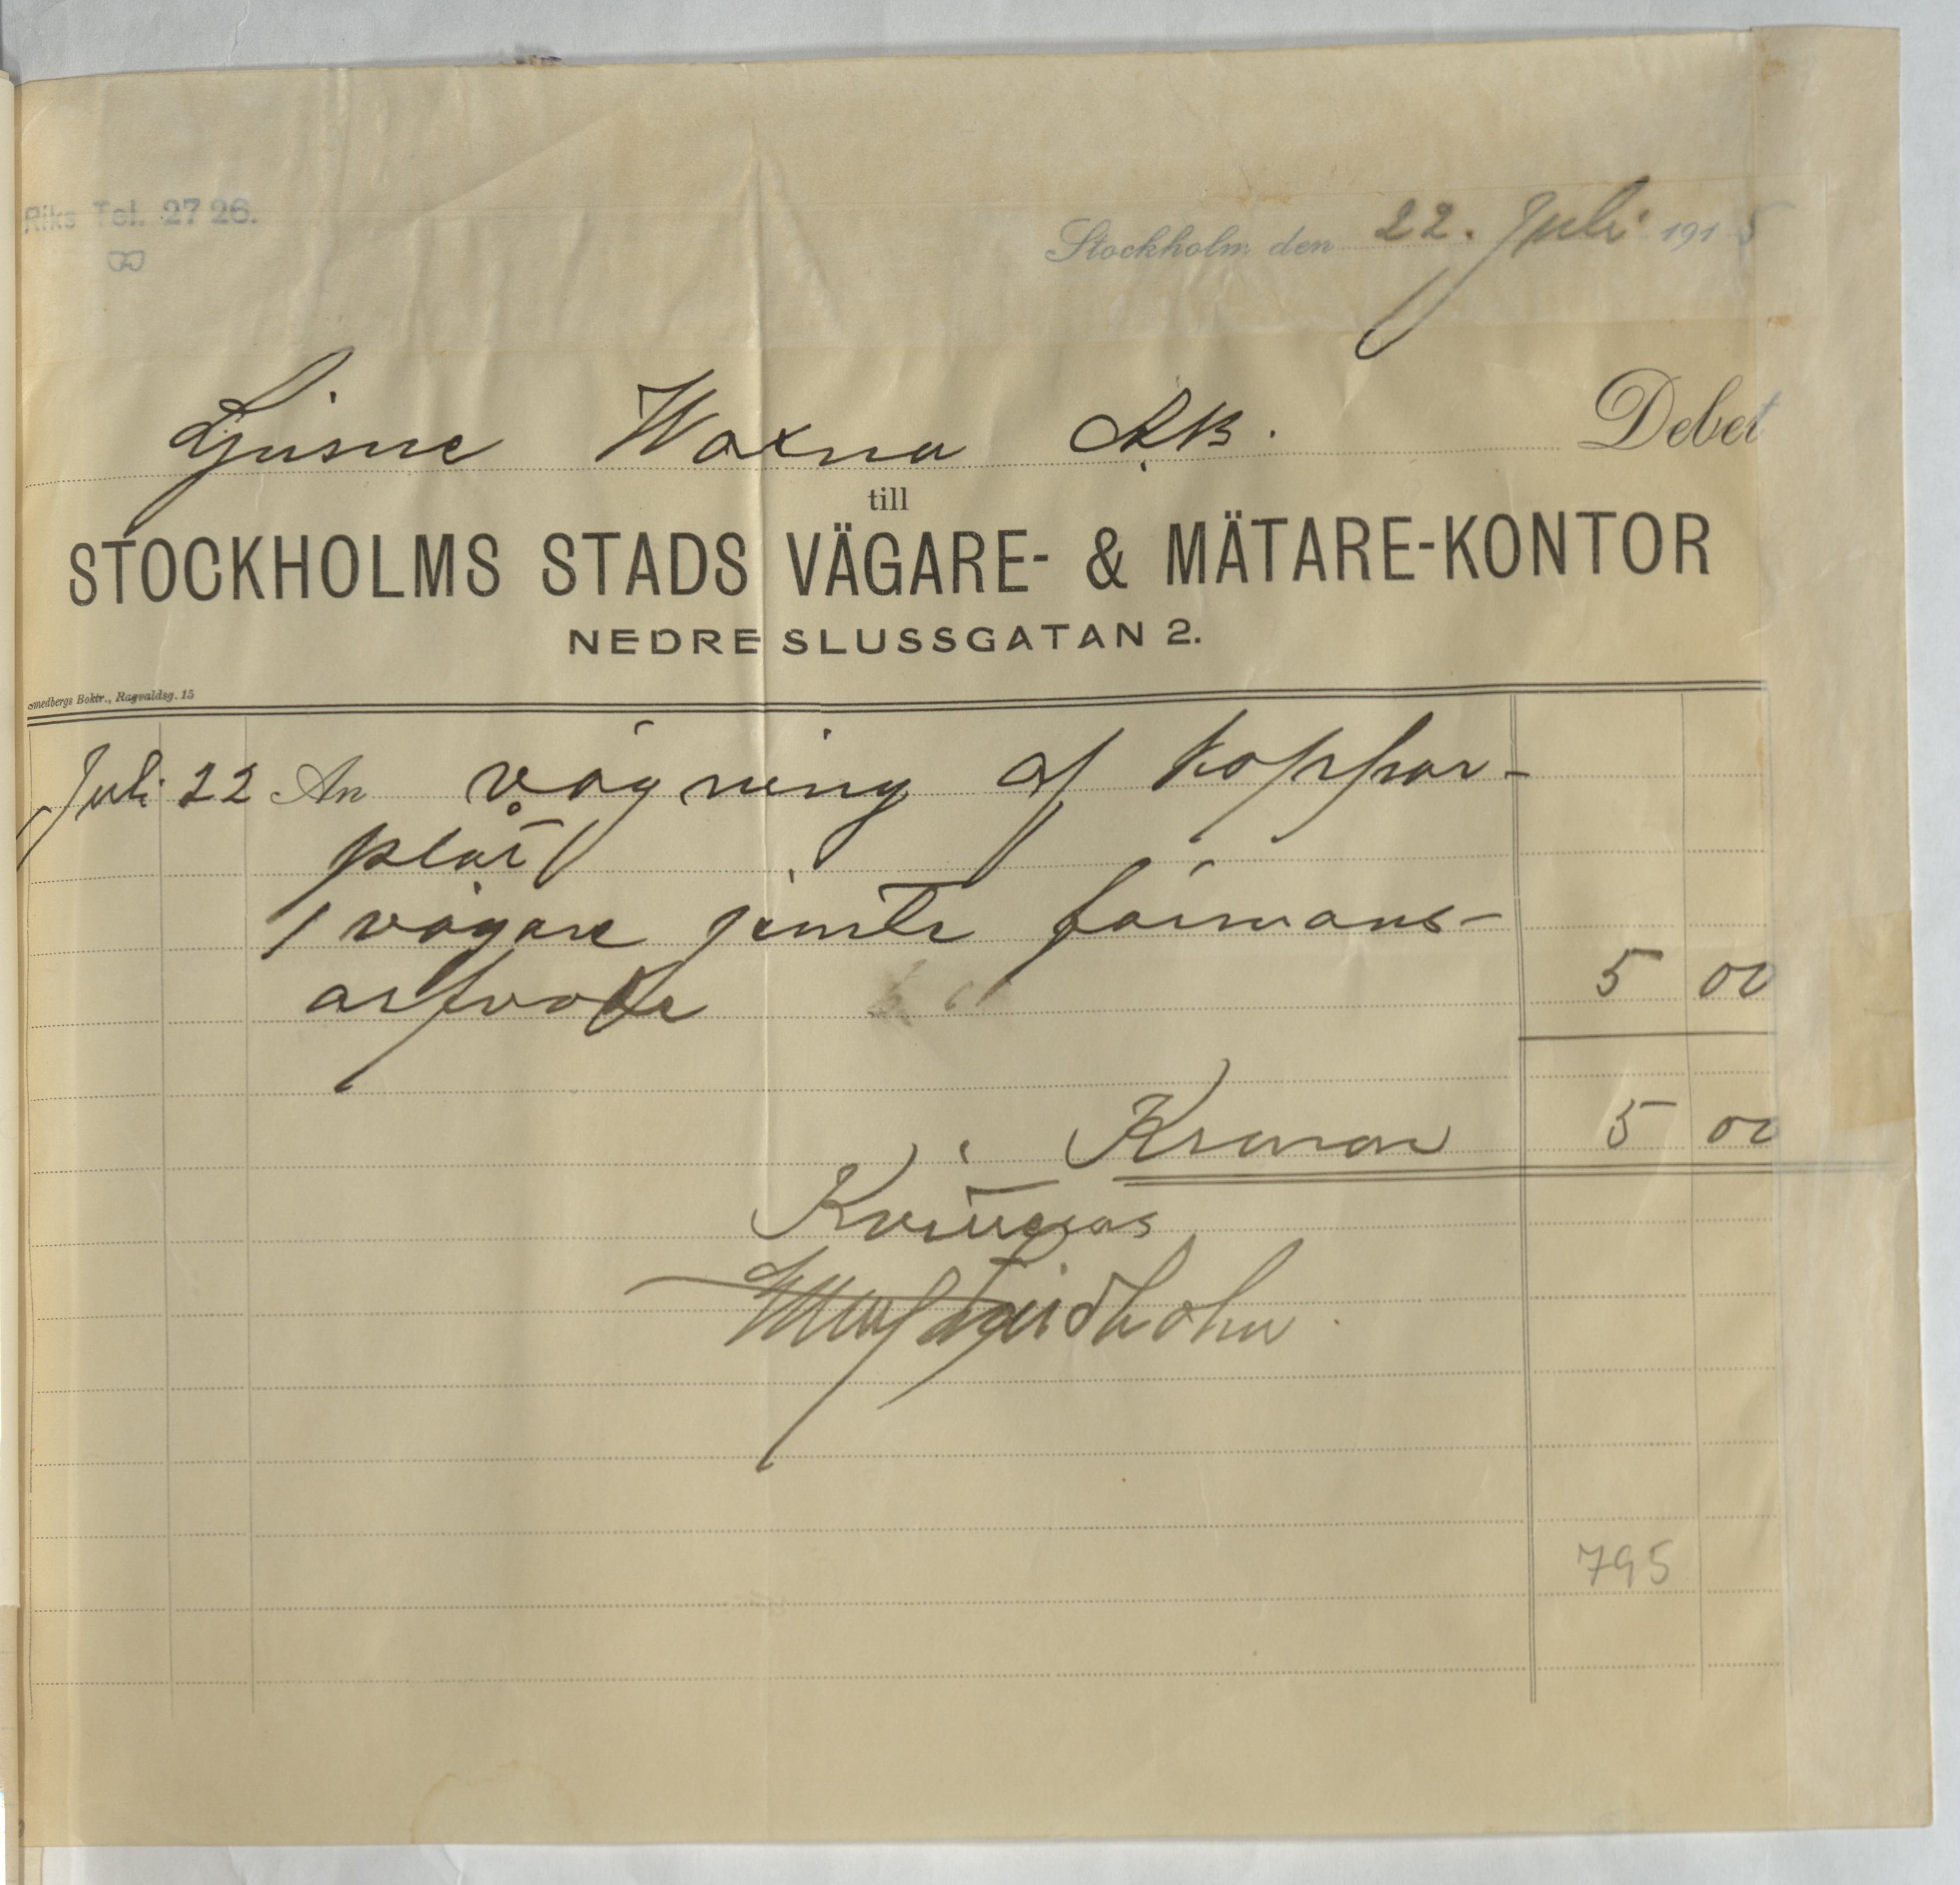 Riks Tel. 27 26.
Stockholm den 22. Juli 1915
Ljusne Woxna AB. Debet
till
STOCKHOLMS STADS VÄGARE- & MÄTARE-KONTOR
NEDRE SLUSSGATAN 2.
Smedbergs Boktr., Ragvaldsg. 15
Juli 22 An vägning af koppar-
plåt
1 vägare jämte förmans-
arfvode 5 00
Kronor 5 00
Kvitteras
795